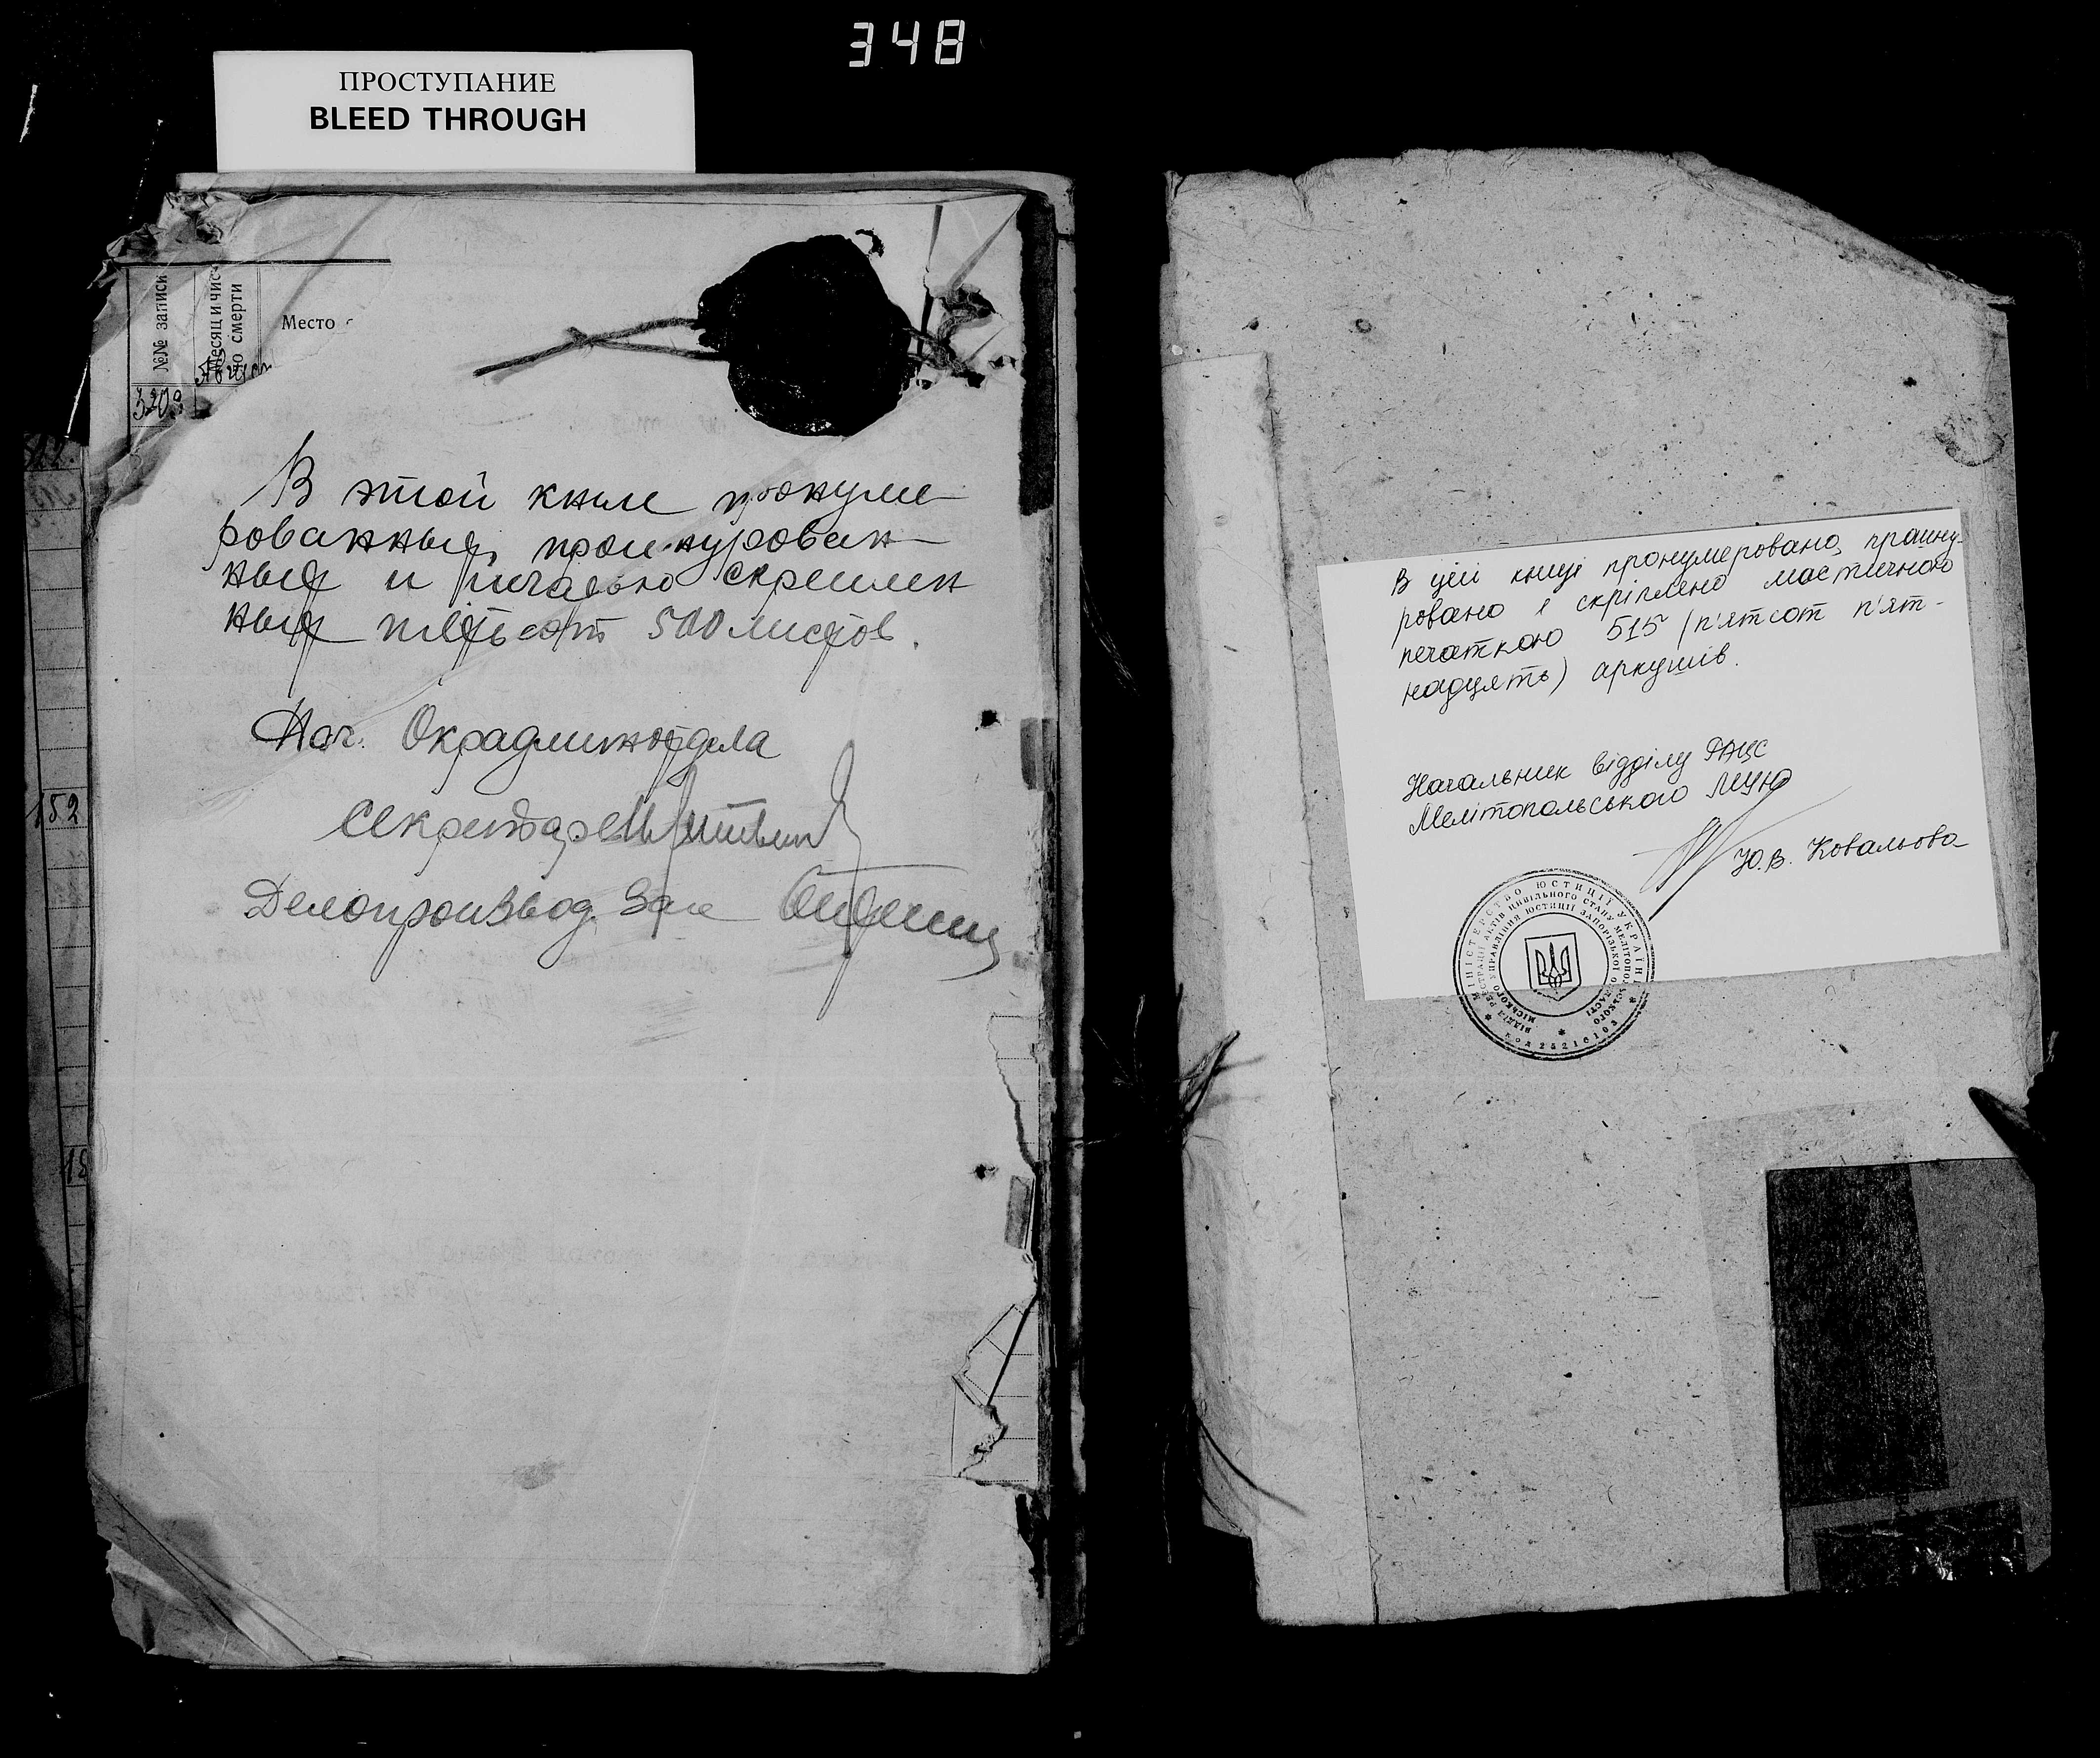 348
ПРОСТУПАНИЕ
BLEED THROUGH
№№ записи
Месяц и чис
ло смерти
Место
3209
152
В этой книге пронуме-
рованных, прошнурован-
ных и печатью скреплен
ных пятьсот 500 листов.
Нач. Окрадминотдела
Секретарь
Делопроизвод. Загс
В цій книзі пронумеровано, прошну-
ровано і скріплено мастичною
печаткою 515 (п'ятсот п'ят-
надцять) аркушів.
Начальник відділу РАЦС
Мелітопольського МУЮ
Ю.В. Ковальова
МІНІСТЕРСТВО ЮСТИЦІЇ УКРАЇНИ
ВІДДІЛ РЕЄСТРАЦІЇ АКТІВ ЦИВІЛЬНОГО СТАНУ МЕЛІТОПОЛЬСЬКОГО
МІСЬКОГО УПРАВЛІННЯ ЮСТИЦІЇ ЗАПОРІЗЬКОЇ ОБЛАСТІ